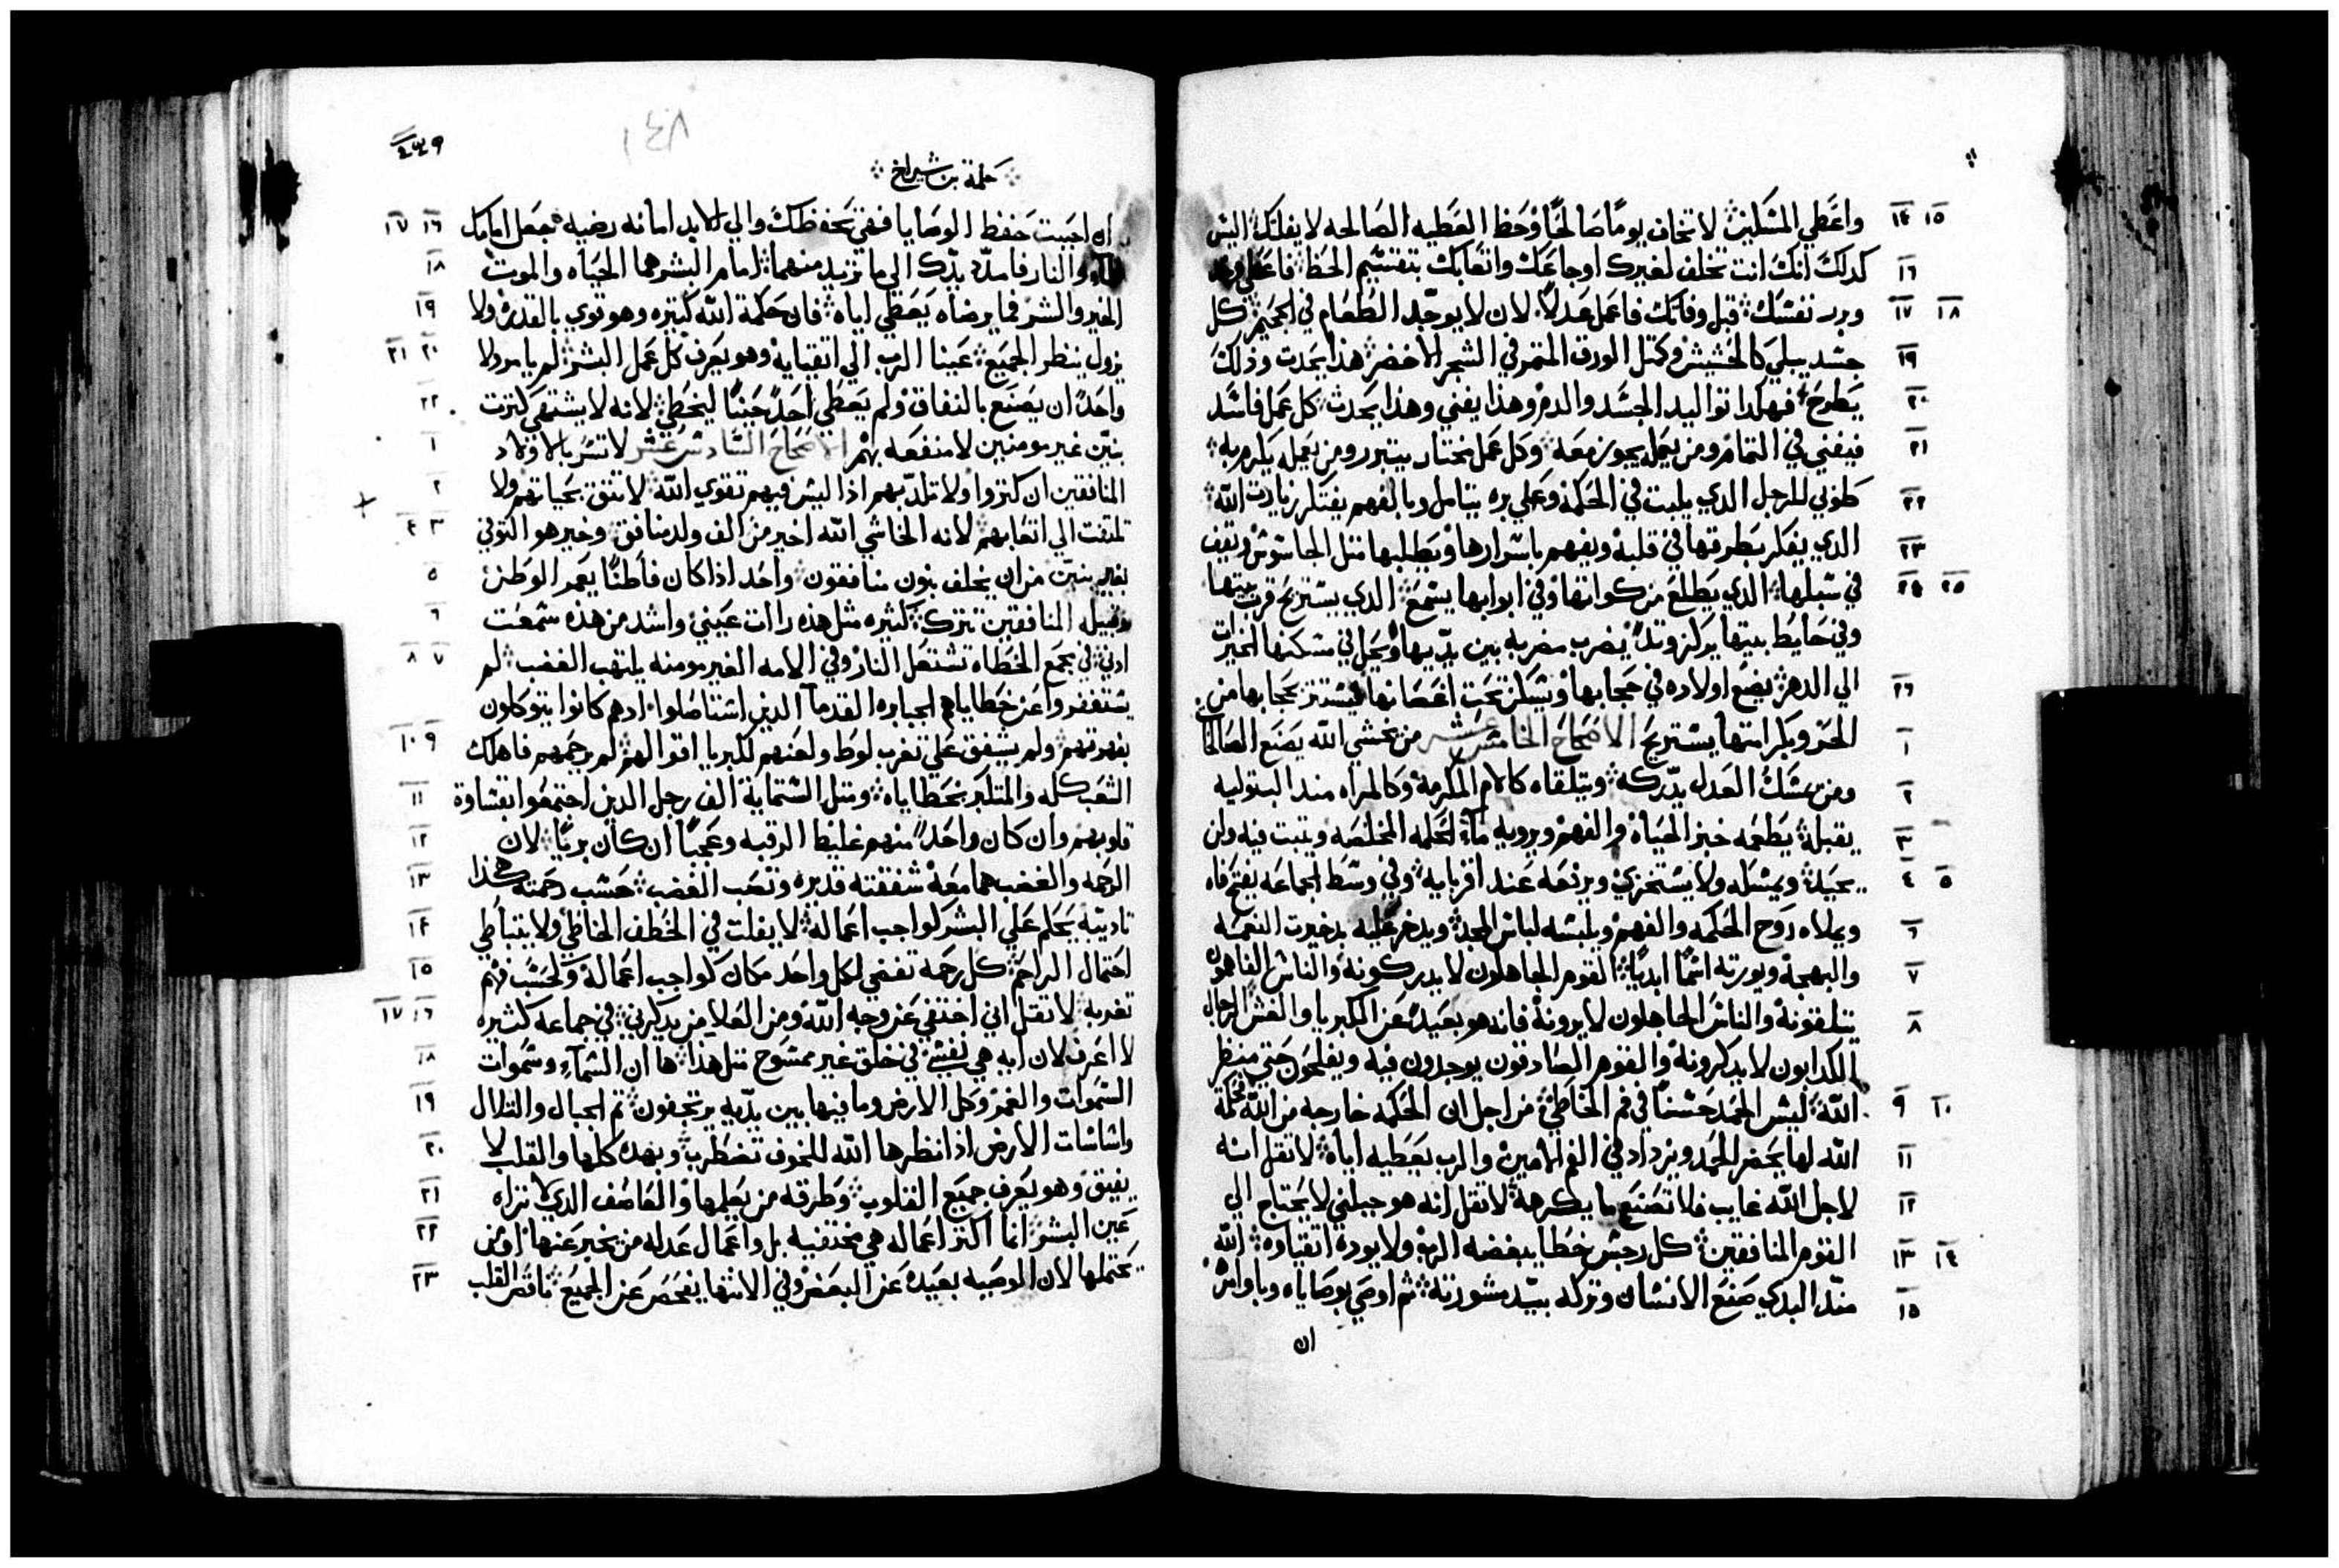 ١٤ ١٥ واعطي المسكين لا تخاف يوما صالحا وحظ العطيه الصالحه لا يفلتك اليس
١٦ كدلك انك انت تخلف لغيرك اوجاعك واتعابك بتقسيم الحظ فاعطي وخد
١٧ ١٨ وبرر نفسك قبل وفاتك فاعمل عدلا لان لا يوجد الطعام في الجحيم كل
١٩ جسد يبلي كالحشيش وكمتل الورق المتمر في الشجر الاخضر هذا يحدت وذلك
٢٠ يطرح فهكدا تواليد الجسد والدم وهذا يفني وهذا يحدث كل عمل فاسد
٢١ فيفني في التمام ومن يعمله يجوز معه وكل عمل مختار يتبرر ومن يعمله يكرم به
٢٢ طوبي للرجل الدي يلبت في الحكمه وعلي بره يتامل وبالفهم يفتكر زيادت الله
٢٣ الدي يفكر بطرقها في قلبه ويفهم باسرارها ويطلبها متل الجاسوس ويقف
٢٤ ٢٥ في سبلها الدي يطلع من كواتها وفي ابوابها يسمع الدي يستريح قرب بيتها
وفي حايط بيتها يركز وتدا يضرب مضربه بين يديها ويحل في مسكنها الخيرات
٢٦ الي الدهر يضع اولاده في حجابها ويسكن تحت اغصانها فيستتر بحجابها من
١ الحر وبكرامتها يستريح الاصحاح الخامس عشر من يخشي الله يصنع الصالحات
٢ ومن يمسك العدل يدركه ويتلقاه كالام المكرمه وكالمراه مند البتوليه
٣ يقبله يطعمه خبز الحياه والفهم ويرويه ماء الحكمه المخلصه ويتبت فيه ولن
٤ ٥ يحيد ويمسكه ولا يستخزي ويرفعه عند اقربايه وفي وسط الجماعه يفتح فاه
٦ ويملاه روح الحكمه والفهم ويلبسه لباس المجد ويدخر عليه بدخيرت النعمه
٧ والبهجه ويورته اسما ابديا القوم الجاهلون لا يدركونه والناس الفاهمون
٨ يتلقونه والناس الجاهلون لا يرونه فانه هو بعيد عن الكبريا والغش الرجال
الكدابون لا يدكرونه والقوم الصادقون يوجدون فيه ويفلحون حتي منظر
٩ ١٠ الله ليس الحمد حسنا في فم الخاطي من اجل ان الحكمه خارجه من الله فحكمة
١١ الله لها يحضر الحمد ويزداد في الفم الامين والرب يعطيه اياه لا تقل انه
١٢ لاجل الله غايب فلا تصنع ما يكرهه لا تقل انه هو جبلني لا يحتاج الي
١٣ ١٤ القوم المنافقين كل رجس خطا يبغضه الرب ولا يوده اتقياوه الله
١٥ مند البدي صنع الانسان وتركه بيد مشورته ثم اوصي بوصاياه وباوامره
ان
٤٤٩
حكمة بن شيراخ
١٦ ١٧ ان احببت حفظ الوصايا ففي تحفظك والي الابد امانه رضيه جعل امامك
١٨ الماء والنار فامدد يدك الي ما تريد منهما امام البشر هما الحياه والموت
١٩ الخير والشر فما يرضاه يعطي اياه فان حكمة الله كتيره وهو قوي بالقدره ولا
٢٠ ٢١ يزول ينظر الجميع عينا الرب الي اتقيايه وهو يعرف كل عمل البشر لم يامر ولا
٢٢ واحدا ان يصنع بالنفاق ولم يعطي احدا حينا ليخطي لانه لا يشتهي كترت
١ بنين غير مومنين لا منفعه بهم الاصحاح السادس عشر لا تسر بالاولاد
٢ المنافقين ان كتروا ولا تلد بهم اذا ليس فيهم تقوي الله لا تتق بحياتهم ولا
٣ ٤ تلتفت الي اتعابهم لانه الخاشي الله اخير من الف ولد منافق وخير هو التوفي
٥ بغير بنين من ان يخلف بنون منافقون واحد اذا كان فاطنا يعمر الوطن
٦ وقبيلة المنافقين تترك كثيره مثل هذه رات عيني واشد من هذه سمعت
٧ ٨ ادني في مجمع الخطاه تشتعل النار وفي الامه الغير مومنه يلتهب الغضب لم
يستغفروا عن خطاياهم الجبابره القدما الذين استاصلوا ادهم كانوا يتوكلون
٩ ١٠ بقوتهم ولم يشفق علي تغرب لوط ولعنهم لكبريا اقوالهم لم يرحمهم فاهلك
١١ الشعب كله والمتكبر بخطاياه ومتل الستماية الف رجل الدين اجتمعوا بقساوة
١٢ قلوبهم وان كان واحدا منهم غليظ الرقبه وعجبا ان كان بريا لان
١٣ الرحمه والغضب هما معه شفقته قديره وتصب الغضب حسب رحمته هكذا
١٤ تاديبه يحكم علي البشر كواجب اعماله لا يفلت في الخطف الخاطي ولا يتباطي
١٥ احتمال الراحم كل رحمه تفضي لكل واحد مكان كواجب اعماله وكحسب فهم
١٦ ١٧ تغربه لا تقل اني اختفي عن وجه الله ومن العلا من يدكرني في جماعه كثيره
١٨ لا اعرف لان ايه هي نفسي في خلق غير ممسوح متل هدا ها ان السماء وسموات
١٩ السموات والغمر وكل الارض وما فيها بين يديه يرتجفون تم الجبال والتلال
٢٠ واساسات الارض اذا نظرها الله للخوف تضطرب وبهده كلها والقلب لا
٢١ يفيق وهو يعرف جميع القلوب وطرقه من يعلمها والعاصف الدي لا تراه
٢٢ عين البشر انما اكتر اعماله هي مختفيه بل واعمال عدله من يخبر عنها او من
٢٣ يحتملها لان الوصيه بعيده عن البعض وفي الانتها يفحص عن الجميع ناقص القلب